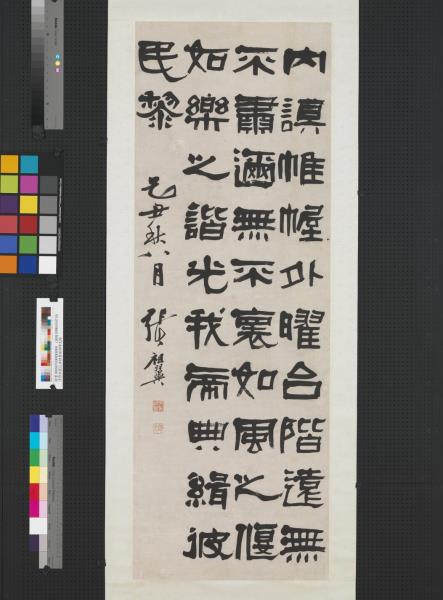 內謨帷幄外曜台階遠無
不肅邇無不褱如風之偃
如樂之諧光我帝典緝彼
民黎
己丑秋八月 張祖翼